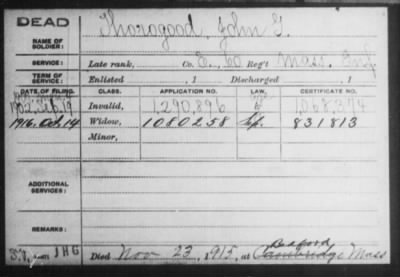 DEAD
NAME OF SOLDIER: Thorogood, John G.
SERVICE: Late rank, Co. E, 60 Reg't Mass. Inf.
TERM OF SERVICE: Enlisted , 1 Discharged , 1
DATE OF FILING. CLASS. APPLICATION NO. LAW. CERTIFICATE NO.
1902, Feb. 19 Invalid, 1,290,896 1,068,394
1916, Oct. 14 Widow, 1080258 831813
Minor,
ADDITIONAL SERVICES:
REMARKS:
Died Nov 23, 1915, at Cambridge Bedford Mass